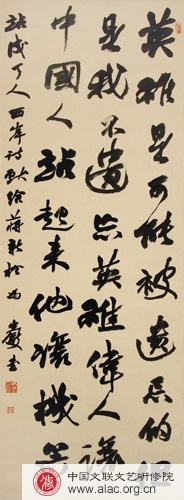 英雄是可能被遗忘的
是我不遺忘英雄偉人讓
中國人站起来他讓機
站成了人 西岸诗
书
中国文联文艺研修院
www.alac.org.cn